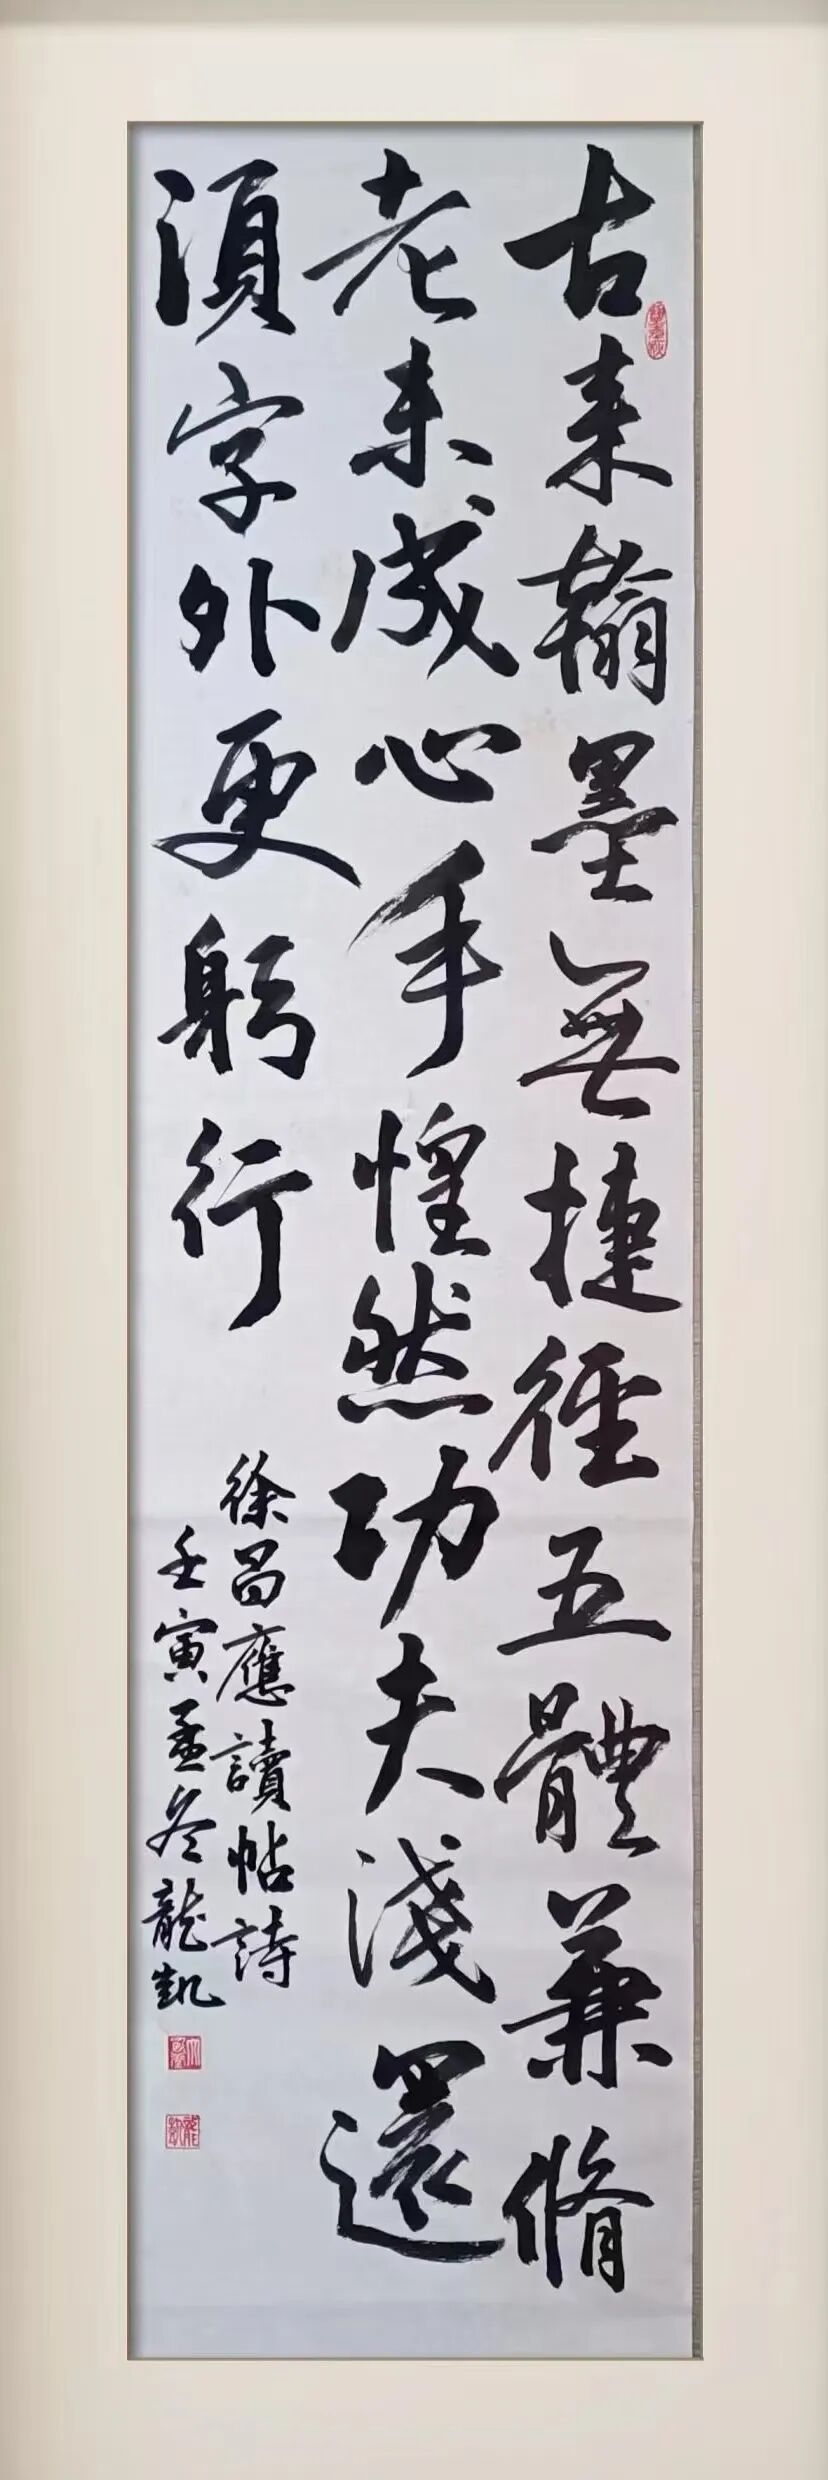 古来翰墨無捷徑五體兼脩
老未成心手惶然功夫淺還
須字外更躬行
徐昌應讀帖詩
壬寅孟冬龍凱